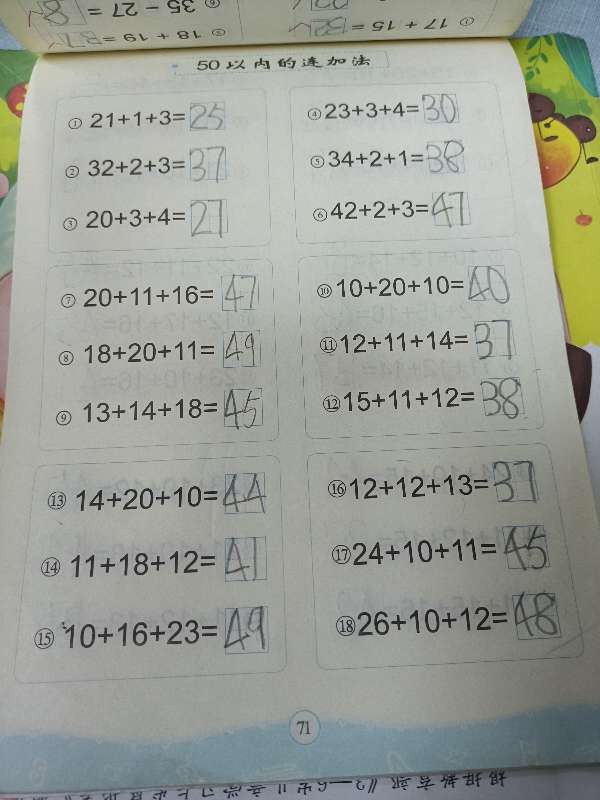 35 - 27 =
17 + 15 = 32
18 + 19 = 37
50以内的连加法
① 21+1+3=25
④ 23+3+4=30
② 32+2+3=37
⑤ 34+2+1=38
③ 20+3+4=27
⑥ 42+2+3=47
⑦ 20+11+16=47
⑩ 10+20+10=40
⑧ 18+20+11=49
⑪ 12+11+14=37
⑨ 13+14+18=45
⑫ 15+11+12=38
⑬ 14+20+10=44
⑯ 12+12+13=37
⑭ 11+18+12=41
⑰ 24+10+11=45
⑮ 10+16+23=49
⑱ 26+10+12=48
71